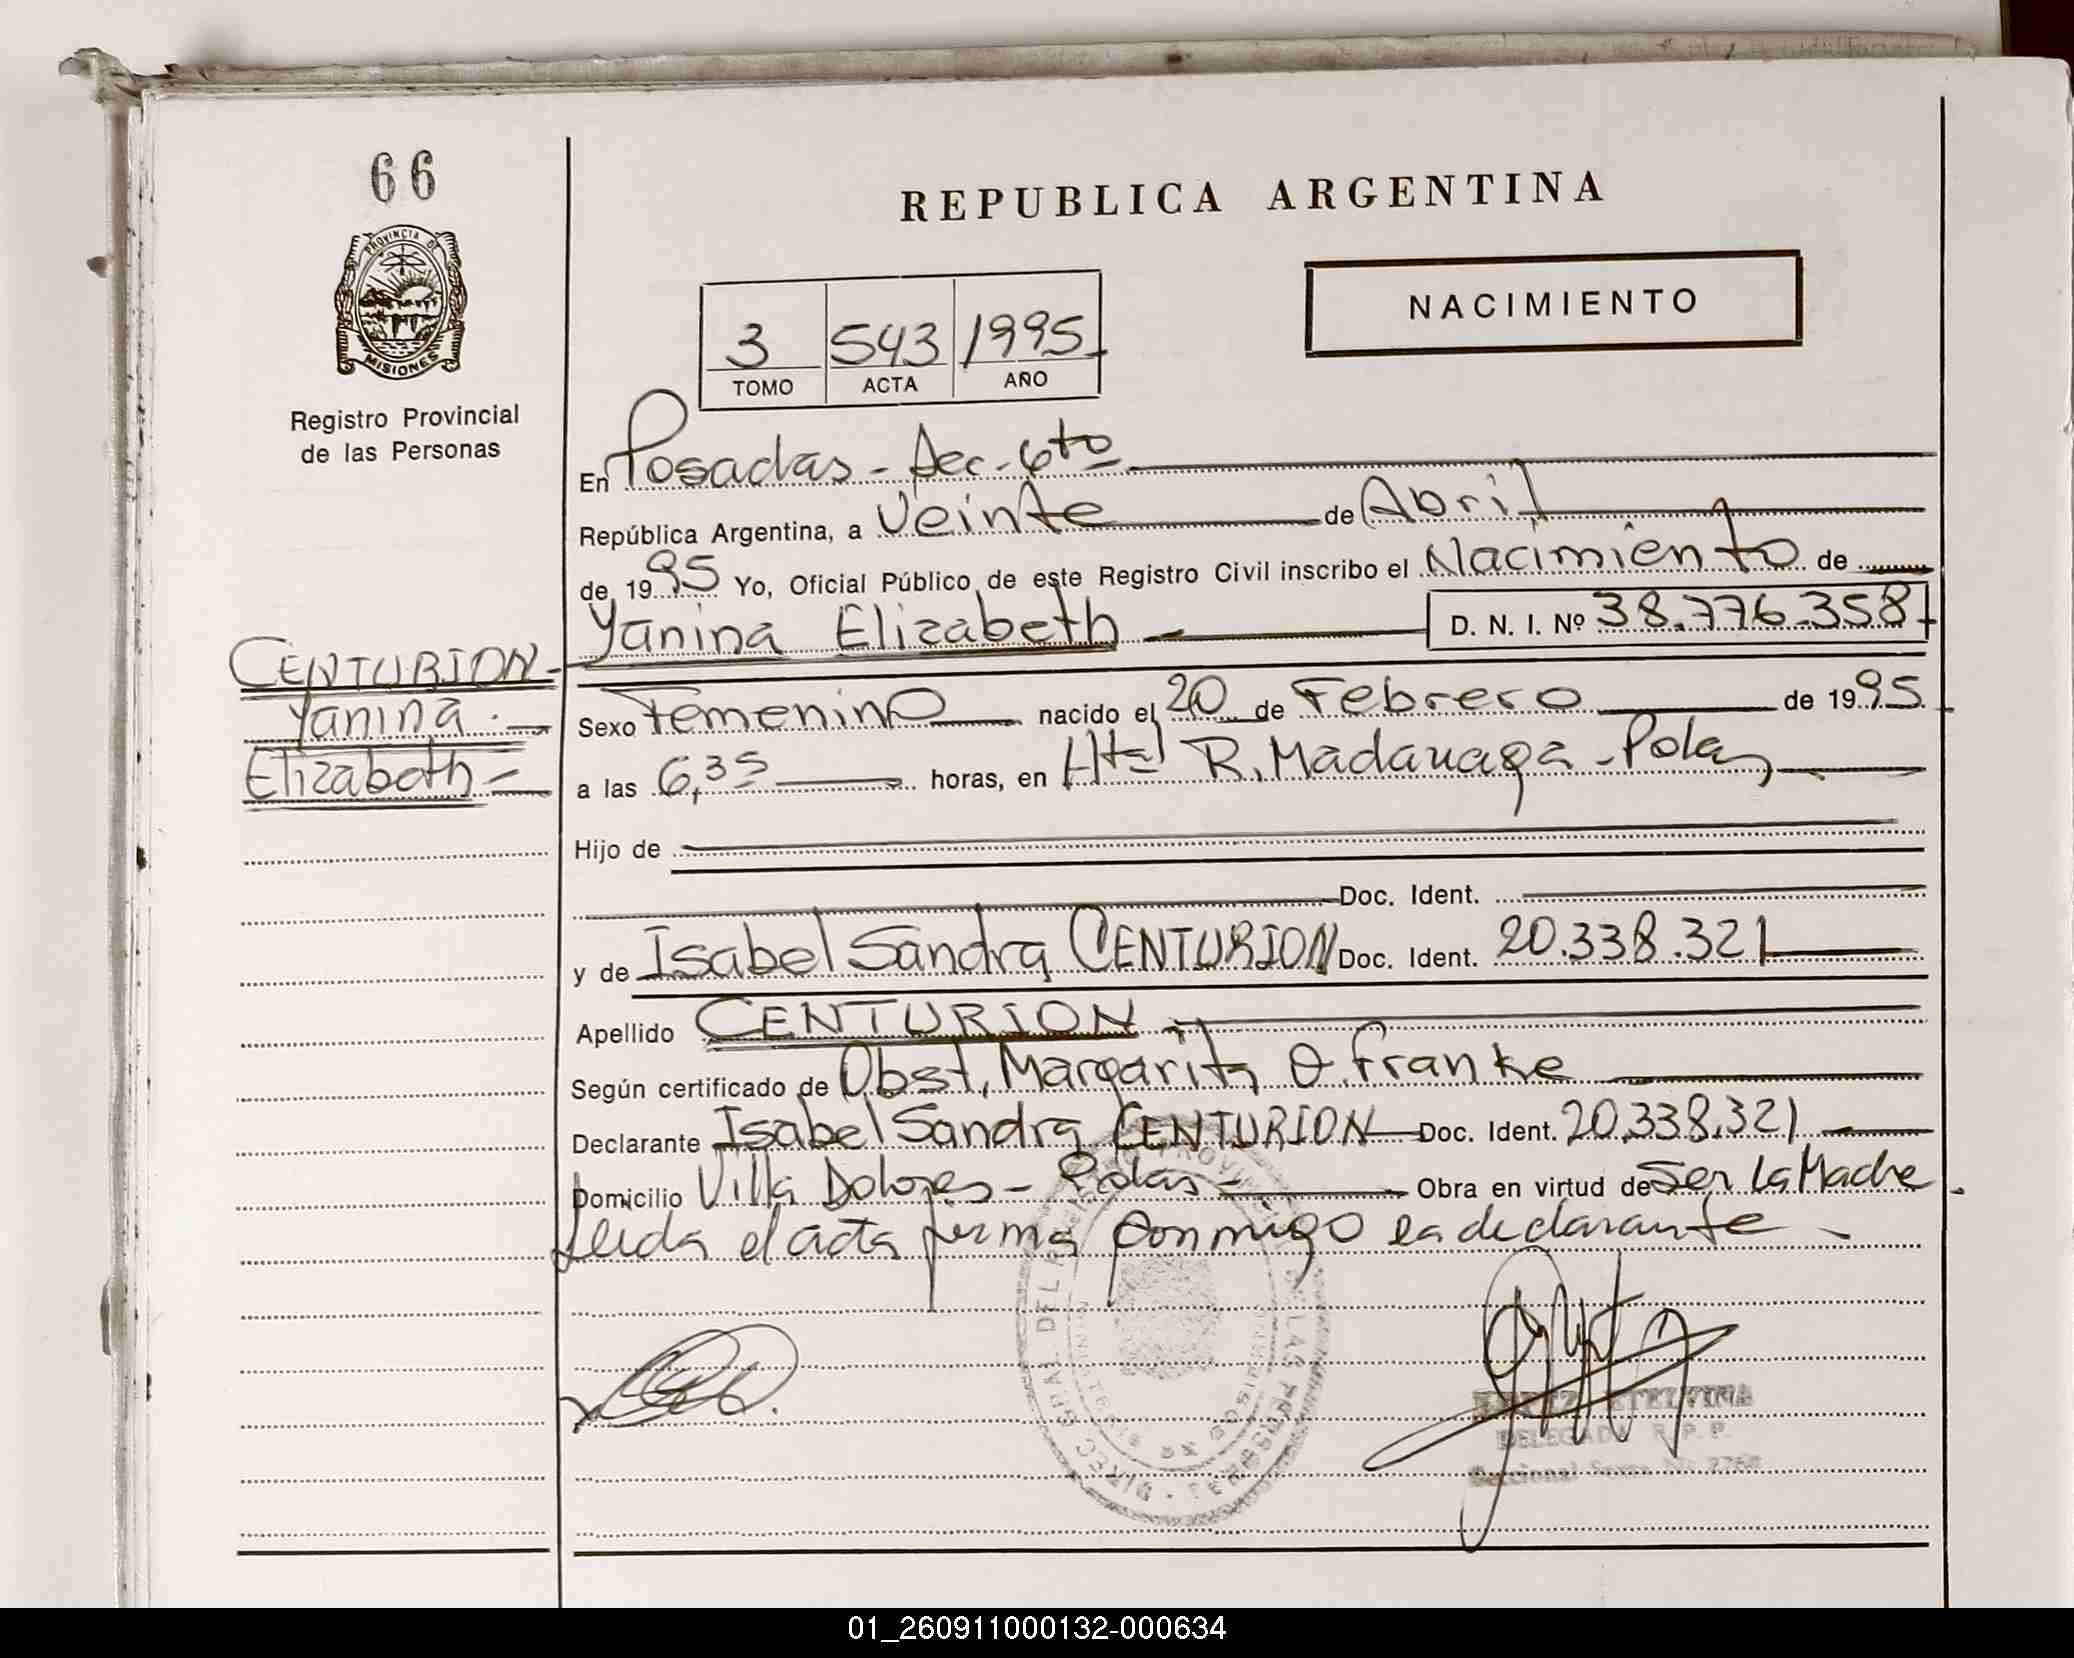 66
REPUBLICA ARGENTINA
PROVINCIA DE
MISIONES
NACIMIENTO
3 543 1995
TOMO ACTA AÑO
Registro Provincial
de las Personas
En Posadas - Sec. 6to
República Argentina, a Veinte de Abril
de 1995 Yo, Oficial Público de este Registro Civil inscribo el Nacimiento de
Yanina Elizabeth D. N. I. Nº 38.776.358
CENTURION
Yanina
Elizabeth
Sexo Femenino nacido el 20 de Febrero de 1995
a las 6,35 horas, en Htal R. Madariaga - Pdas
Hijo de
Doc. Ident.
y de Isabel Sandra CENTURION Doc. Ident. 20.338.321
Apellido CENTURION
Según certificado de Obst. Margarita O. Franke
Declarante Isabel Sandra CENTURION Doc. Ident. 20.338.321
Domicilio Villa Dolores - Pdas - Obra en virtud de Ser la Madre
Leida el acta firma conmigo la declarante
ETELVINA
DELEGADA R. P. P.
01_260911000132-000634